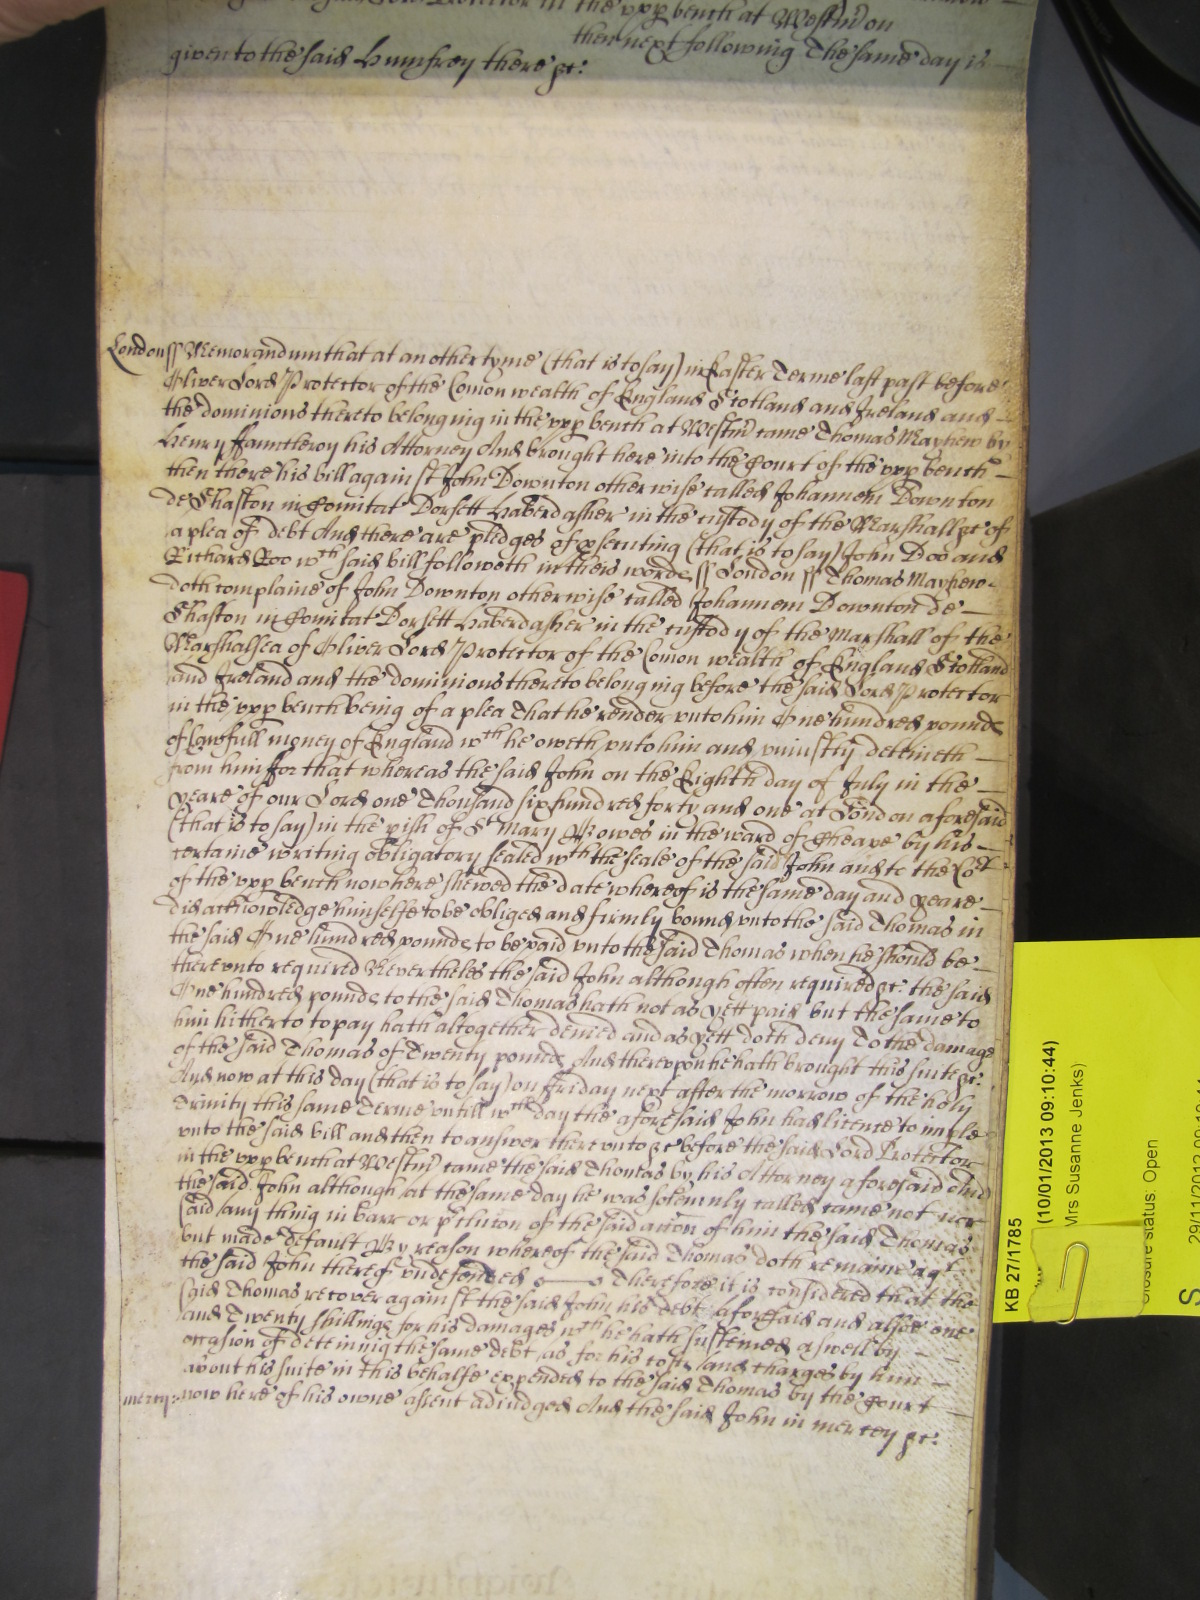 Lord Protector in the upp bench at Westm̃ on
then next following The same day is
given to the said Humfrey there &c:
London ss Memorandum that at an other tyme (that is to say) in Easter Terme last past before
Oliver Lord Protector of the Com̃on wealth of England Scotland and Ireland and
the dominions thereto belonging in the upp bench at Westm̃ came Thomas Mayhew by
Henry ffauntleroy his Attorney And brought here into the Court of the upp bench
then there his bill against John Downton otherwise called Johannem Downton
de Shaston in Comitat Dorsett Haberdasher in the custody of the Marshall &c of
a plea of debt And there are pledges of p̲secuting (that is to say) John Doo and
Richard Roo wch said bill followeth in theis wordes ss London ss Thomas Mayhew
doth complaine of John Downton otherwise called Johannem Downton de
Shaston in Comitat Dorsett Haberdasher in the custody of the Marshall of the
Marshalsea of Oliver Lord Protector of the Com̃on wealth of England Scotland
and Ireland and the dominions thereto belonging before the said Lord Protector
in the upp bench being of a plea That he render vnto him One hundred pounds
of lawfull money of England wch he oweth vnto him and vniustly deteineth
from him ffor that whereas the said John on the Eighth day of July in the
yeare of our Lord one Thousand six hundred forty and one at London aforesaid
(that is to say) in the p̲ish of St Mary Bowes in the ward of Cheape by his
certaine writing obligatory sealed wth the seale of the said John and to the Cort
of the upp bench now here shewed the date whereof is the same day and yeare
did acknowledge himselfe to be obliged and firmly bound vnto the said Thomas in
the said One hundred pounds to be paid vnto the said Thomas when he should be
therevnto required Nevertheles the said John although often required &c: the said
One hundred pounds to the said Thomas hath not as yett paid but the same to
him hitherto to pay hath altogether denied and as yett doth deny To the damage
of the said Thomas of Twenty pounds And therevpon he hath brought this suite &c:
And now at this day (that is to say) on ffriday next after the morrow of the holy
Trinity this same Terme vntill wch day the aforesaid John had licence to imple
vnto the said bill and then to answer therevnto &c before the said Lord Protector
in the upp bench at Westm̃ came the said Thomas by his Attorney aforesaid And
the said John although at the same day he was solemnly called came not nor
said any thing in barr or p̲clusion of the said acc̃on of him the said Thomas
but made default By reason whereof the said Thomas doth remaine agt
the said John thereof vndefended Therefore it is considered that the
said Thomas recover against the said John his debt aforesaid and alsoe one
and Twenty shillings for his damages wch he hath susteined aswell by
occasion of deteining the same debt as for his costs and charges by him
about his suite in this behalfe expended to the said Thomas by the Court
mercy: now here of his owne assent adiudged And the said John in mercy &c:
KB 27/1785
(10/01/2013 09:10:44)
Mrs Susanne Jenks)
Closure status: Open
S